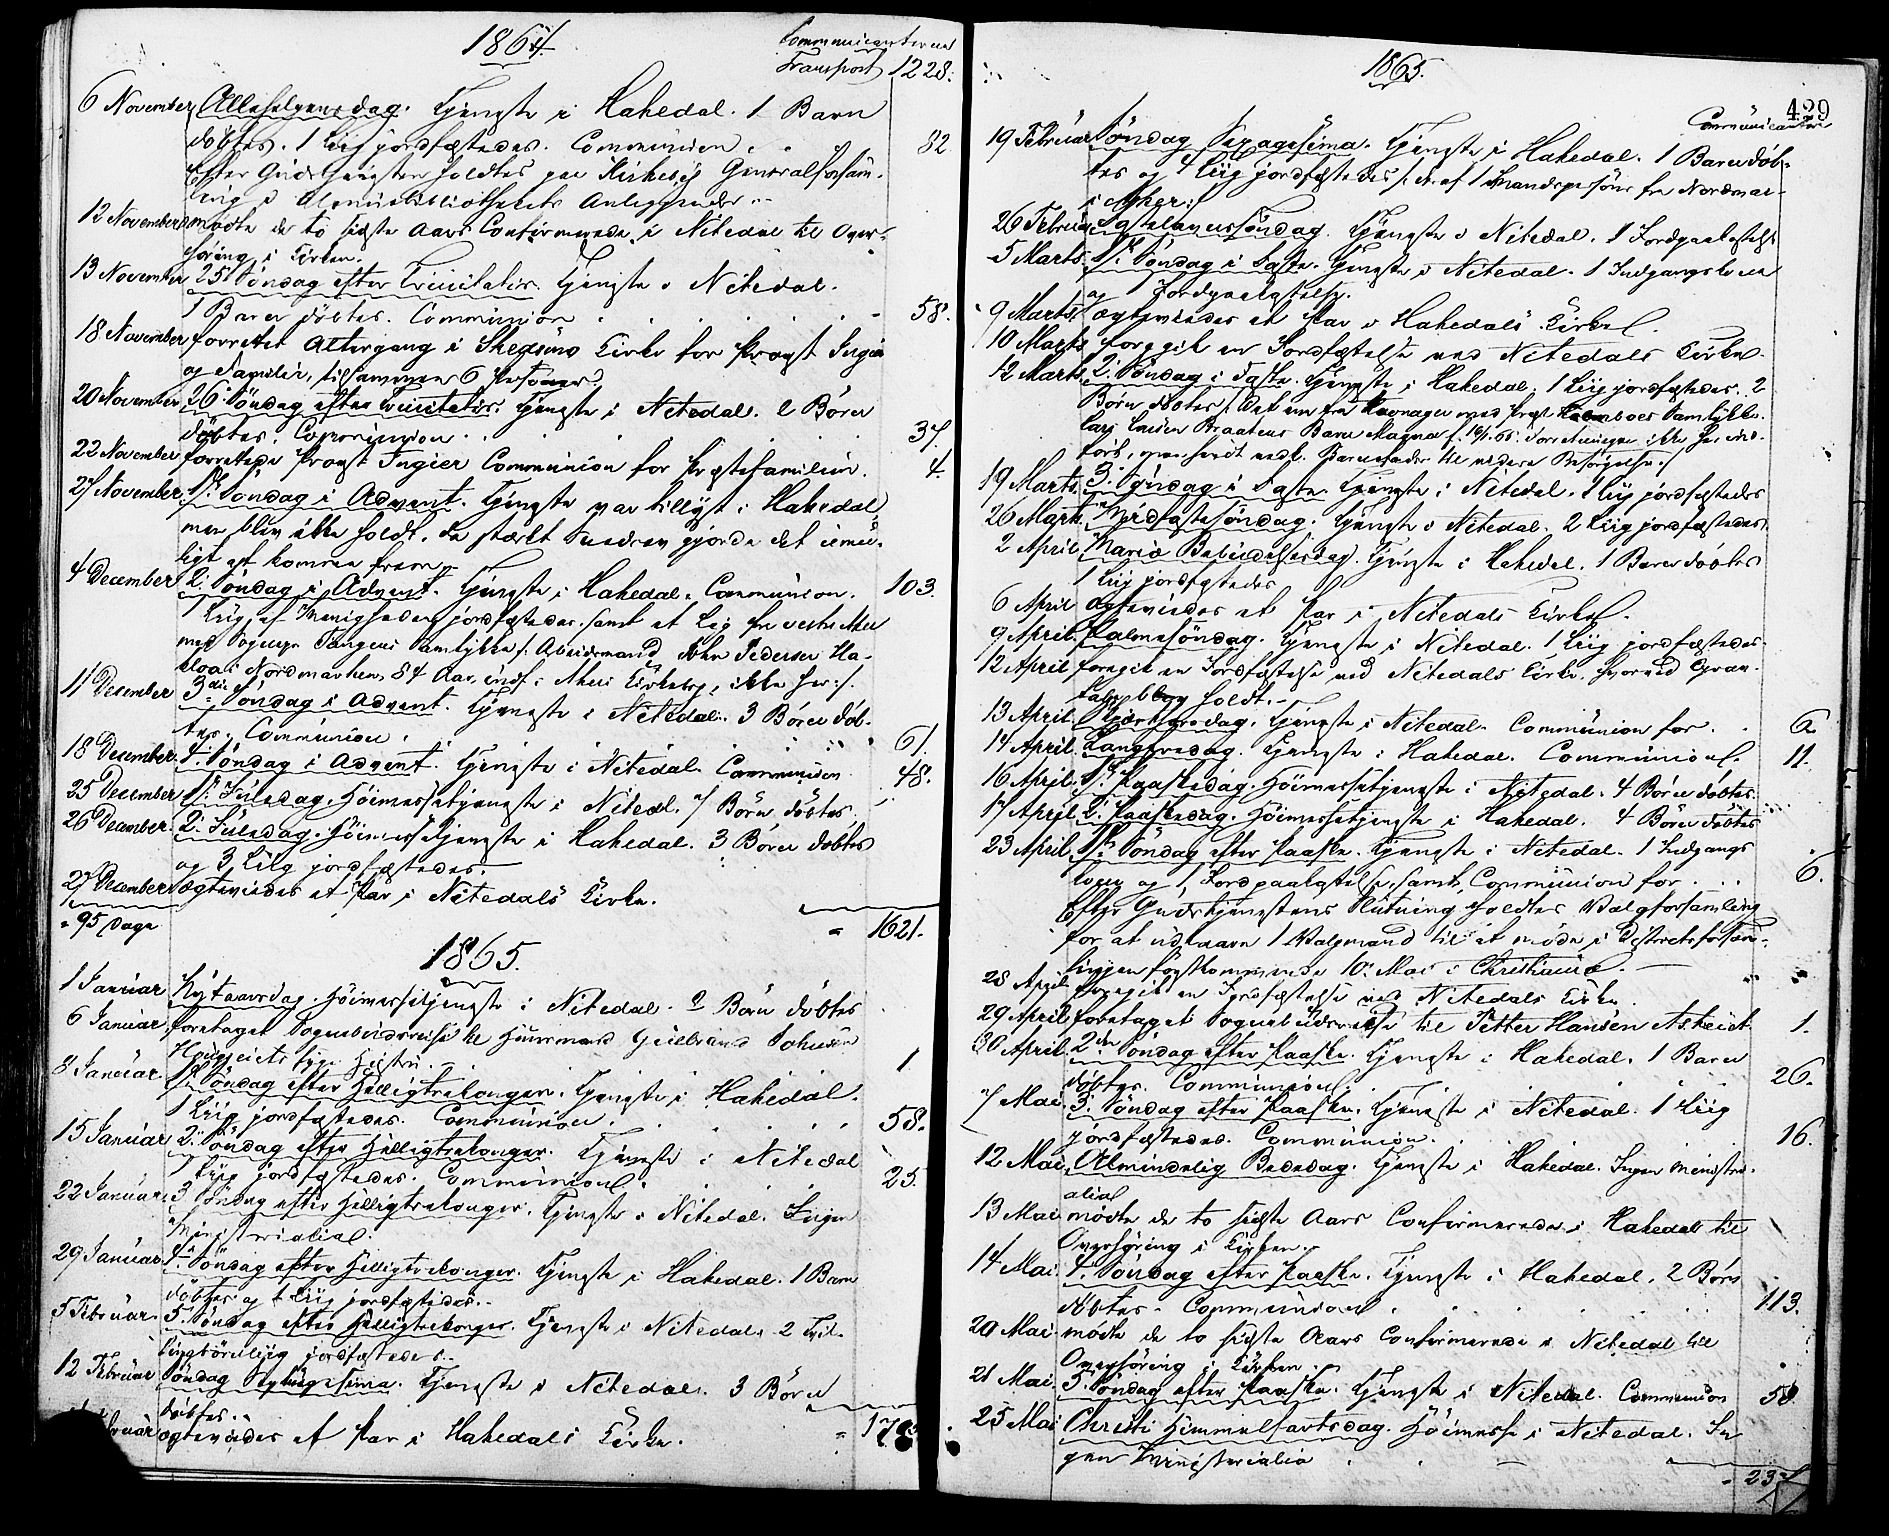 1864.
Communicanternes
Transport 1228.
6 November Allehelgensdag. Tjeneste i Hakedal. 1 Barn
döbtes. 1 Liig jordfæstedes. Communion . . 82
Efter Gudstjenesten holdtes paa Kirkevej Generalforsam-
ling i Almuebibliothekets Anliggender.
12 November mödte de to sidste Aars Confirmerede i Nitedal til Over-
höring i Kirken.
13 November 25. Söndag efter Trinitatis. Tjeneste i Nitedal.
1 Barn döbtes. Communion . . . . 58.
18 November forrettet Altergang i Skedsmo Kirke for Provst Ingier
og Familie, tilsammen 6 Personer.
20 November 26. Söndag efter Trinitatis. Tjeneste i Nitedal. 2 Börn
döbtes. Communion . . . . 37.
22 November forrettede Provst Ingier Communion for Præstefamilien. 4.
27 November 1ste Söndag i Advent. Tjeneste var tillyst i Hakedal,
men blev ikke holdt, da stærkt Sneedrev gjorde det umu-
ligt at komme frem.
4 December 2. Söndag i Advent. Tjeneste i Hakedal. Communion. 103.
1 Liig af Menigheden jordfæstedes, samt et Lig fra vestre Aker
med Sognepr. Tangens Samtykke /: Arbeidsmand John Pedersen Ha-
kloa i Nordmarken, 84 Aar, indf. i Akers Kirkebog, ikke her :/.
11 December 3die Söndag i Advent. Tjeneste i Nitedal. 3 Börn döb-
tes. Communion . . . . 61.
18 December 4. Söndag i Advent. Tjeneste i Nitedal. Communion 48.
25 December 1ste Juledag. Höimessetjeneste i Nitedal. 7 Börn döbtes.
26 December 2. Juledag. Höimessetjeneste i Hakedal. 3 Börn döbtes
og 3 Liig jordfæstedes.
27 December ægteviedes et Par i Nitedals Kirke.
= 95 Dage = 1621.
1865.
1 Januar Nytaarsdag. Höimessetjeneste i Nitedal. 2 Börn döbtes
6 Januar foretaget Sognebudsreise til Huusmand Gulbrand Johnsen
Haugeiets syge Hustru. . 1
8 Januar 1ste Söndag efter Helligtrekonger. Tjeneste i Hakedal.
1 Liig jordfæstedes. Communion . . . . 58.
15 Januar 2. Söndag efter Helligtrekonger. Tjeneste i Nitedal
1 Liig jordfæstedes. Communion . . . 25.
22 Januar 3. Söndag efter Helligtrekonger. Tjeneste i Nitedal. Ingen
Ministerialia.
29 Januar 4. Söndag efter Helligtrekonger. Tjeneste i Hakedal. 1 Barn
döbtes og 1 Liig jordfæstedes.
5 Februar 5. Söndag efter Helligtrekonger. Tjeneste i Nitedal. 2
jordfæstedes.
12 Februar Söndag Septuagesima. Tjeneste i Nitedal. 3 Börn
döbtes.
bruar ægteviedes et Par i Hakedals Kirke.
1865.
429
Communicanter
19 Februar Söndag Sexagesima. Tjeneste i Hakedal. 1 Barn döb-
tes og 4 Liig jordfæstedes /: d. af 1 Mandsperson fra Nordmar-
i Aker:/
26 Februar Fastelavnssöndag. Tjeneste i Nitedal. 1 Jordpaakastelse
5 Marts. 1ste Söndag i Faste. Tjeneste i Nitedal. 1 Indgangskone
og 1 Jordpaakastelse.
9 Marts. ægteviedes et Par i Hakedals Kirke.
10 Marts. foregik en Jordfæstelse ved Nitedals Kirke.
12 Marts. 2. Söndag i Faste. Tjeneste i Hakedal. 1 Liig jordfæstedes. 2
Börn döbtes /: det ene fra med Præst Samtykke.
Lars Larsen Braatens Barn Magna f. ikke her ind-
förb, men sendt vedk. Barnefader til videre Besörgelse:/
19 Marts. 3. Söndag i Faste. Tjeneste i Nitedal. 1 Liig jordfæstedes
26 Marts. Midfastesöndag. Tjeneste i Nitedal. 2 Liig jordfæstedes.
2 April Mariæ Bebudelsesdag. Tjeneste i Hakedal. 1 Barn döbtes
1 Liig jordfæstedes
6 April ægteviedes et Par i Nitedals Kirke.
9 April. Palmesöndag. Tjeneste i Nitedal. 1 Liig jordfæstedes.
12 April foregik en Jordfæstelse ved Nitedals Kirke, hvorved Grav-
tale blev holdt.
13 April. Skjærtorsdag. Tjeneste i Nitedal. Communion for . . 6.
14 April. Langfredag. Tjeneste i Hakedal. Communion. 11.
16 April. 1ste Paaskedag. Höimessetjeneste i Nitedal. 4 Börn döbtes.
17 April. 2. Paaskedag. Höimessetjeneste i Hakedal. 4 Börn döbtes
23 April. 1ste Söndag efter Paaske. Tjeneste i Nitedal. 1 Indgangs
kone og 1 Jordpaakastelse, samt Communion for . . . 6.
Efter Gudstjenestens Slutning holdtes Valgforsamling
for at udnævne 1 Valgmand til at möde i Districtsforsam-
lingen förstkommende 10. Mai i Christiania.
28 April foregik en Jordfæstelse ved Nitedals Kirke.
29 April foretaget Sognebudsreise til Petter Hansen Askeiet 1.
30 April. 2den Söndag efter Paaske. Tjeneste i Hakedal. 1 Barn
döbtes. Communion . . . 26.
7 Mai 3. Söndag efter Paaske. Tjeneste i Nitedal. 1 Liig
jordfæstedes. Communion. . . 16.
12 Mai. Almindelig Bededag. Tjeneste i Hakedal. Ingen Ministeri-
alia
13 Mai mödte de to sidste Aars Confirmerede i Hakedal til
Overhöring i Kirken.
14 Mai. 4. Söndag efter Paaske. Tjeneste i Hakedal. 2 Börn
döbtes. Communion . . . . 113.
20 Mai mödte de to sidste Aars Confirmerede i Nitedal til
Overhöring i Kirken.
21 Mai. 5. Söndag efter Paaske. Tjeneste i Nitedal. Communion 58
25 Mai Christi Himmelfartsdag. Höimesse i Nitedal. In
gen Ministerialia
= 237